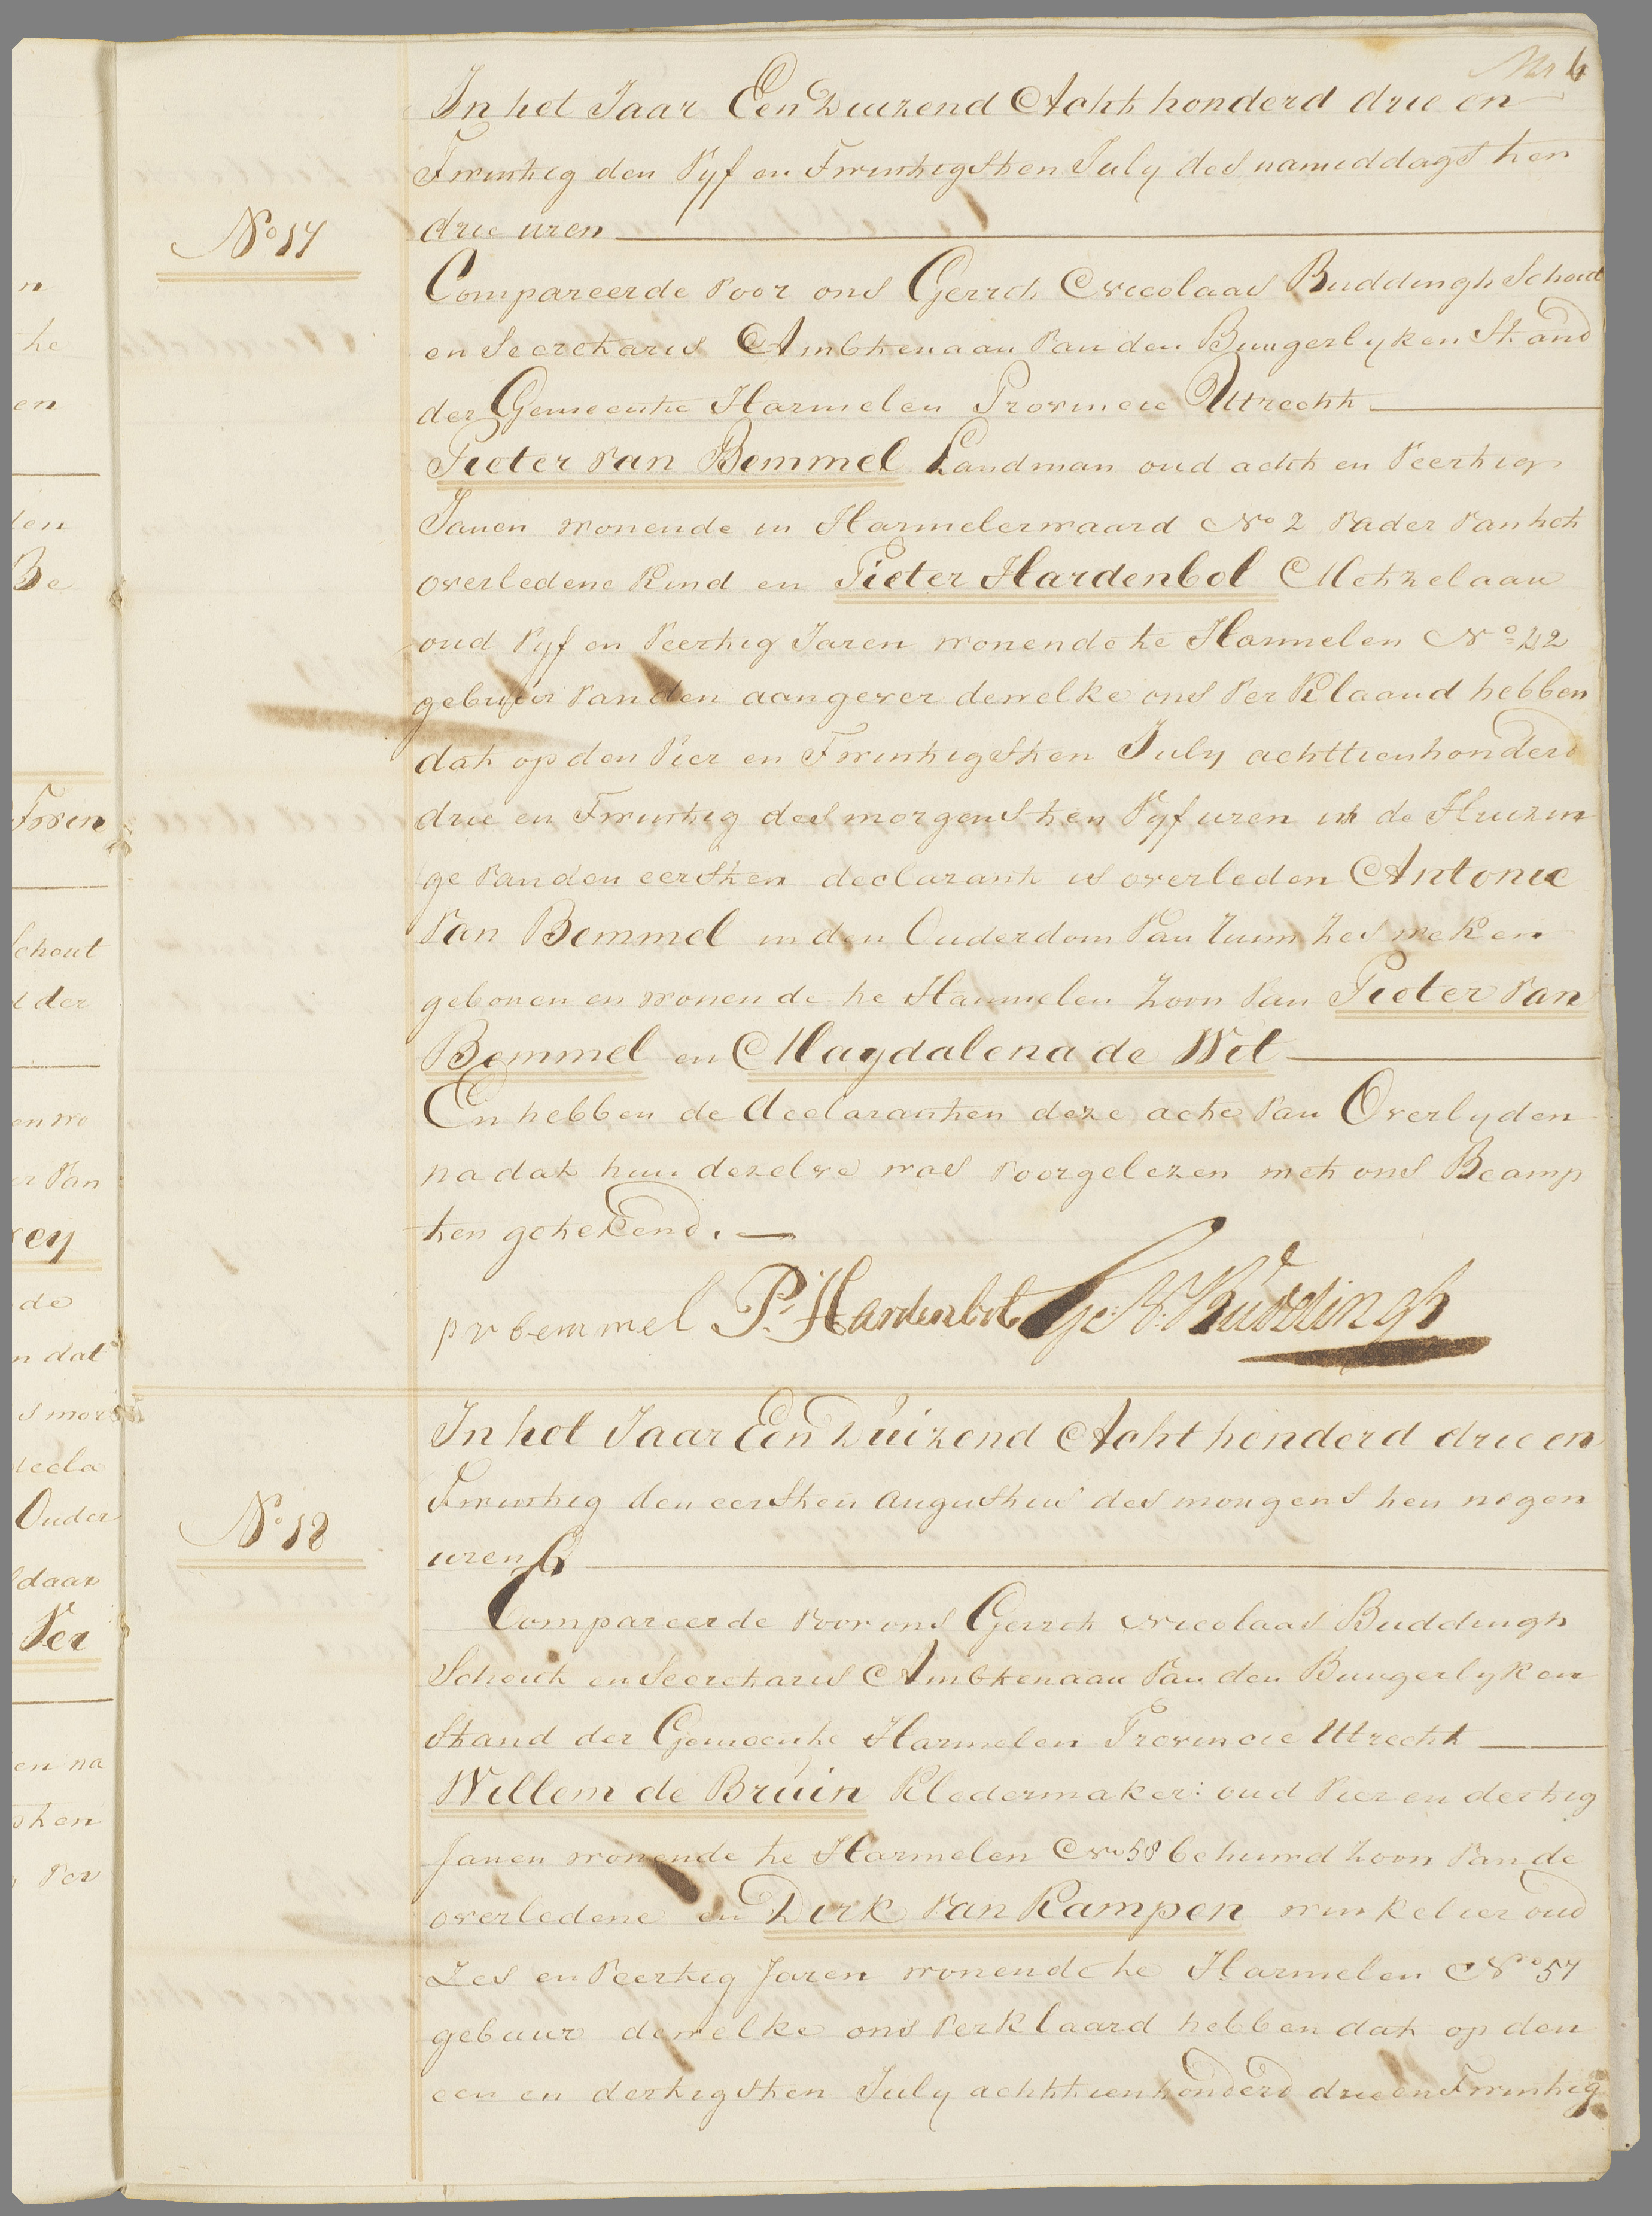 In het Jaar Een Duizend Acht honderd drie en
Twintig den Vyf en Twintigsten July des namiddags ten
No 17
drie uren
Compareerde voor ons Gerrit Nicolaas Buddingh Schout
en Secretaris Ambtenaar van den Burgerlyken Stand
der Gemeente Harmelen Provincie Uttrecht
Pieter van Bemmel Landman oud acht en veertig
Jaren wonende in Harmelerwaard No 2 vader van het
overledene Kind en Pieter Hardenbol Metzelaar
oud vyf en veertig Jaren wonende te Harmelen No 42
gebuur van den aangever dewelke ons verklaard hebben
dat op den vier en Twintigsten July achttienhonderd
drie en Twintig des morgens ten Vyf uren in de Huizin
ge van den eersten declarant is overleden Antonie
van Bemmel in den Ouderdom van ruim zes weken
geboren en wonende te Harmelen Zoon van Pieter van
Bemmel en Magdalena de Wit
En hebben de declaranten deze acte van Overlyden
na dat hun dezelve was voorgelezen met ons Beamp
ten getekend.
p v bemmel P. Hardenbol G: N: Buddingh
In het Jaar Een Duizend Acht honderd drie en
Twintig den eersten augustus des morgens ten negen
No 18
uren
Compareerde voor ons Gerrit Nicolaas Buddingh
Schout en Secretaris Ambtenaar van den Burgerlyken
Stand der Gemeente Harmelen Provincie Uttrecht
Willem de Bruin Kledermaker: oud vier en dertig
Jaren wonende te Harmelen No 58 behuwd zoon van de
overledene en Dirk van Kampen winkelier oud
Zes en veertig Jaren wonende te Harmelen No 57
gebuur dewelke ons verklaard hebben dat op den
een en dertigsten July achttienhonderd drie en Twintig